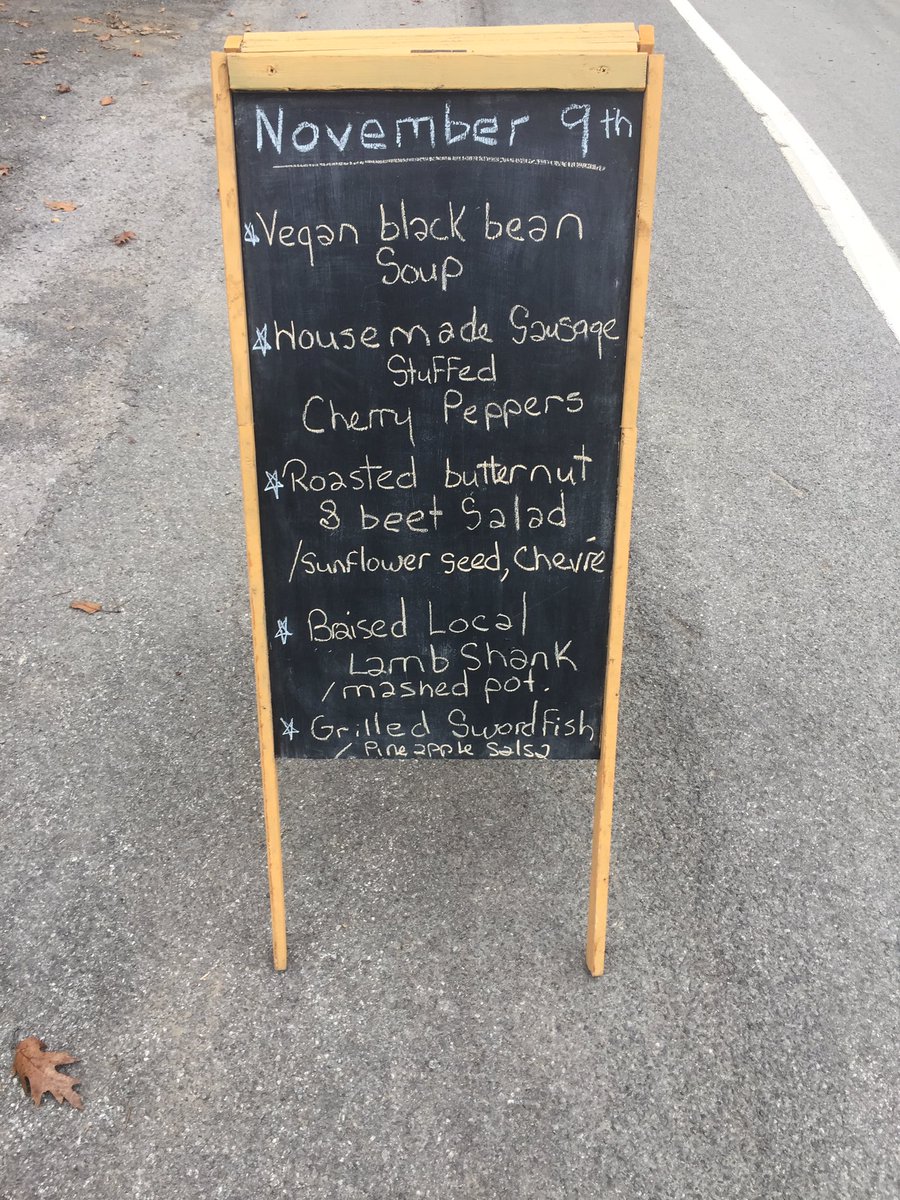 November 9th
Vegan black bean
Soup
Housemade Sausage
Stuffed
Cherry Peppers
Roasted butternut
& beet Salad
/sunflower seed, Chevre
Braised Local
Lamb Shank
/mashed pot.
Grilled Swordfish
/Pineapple Salsa